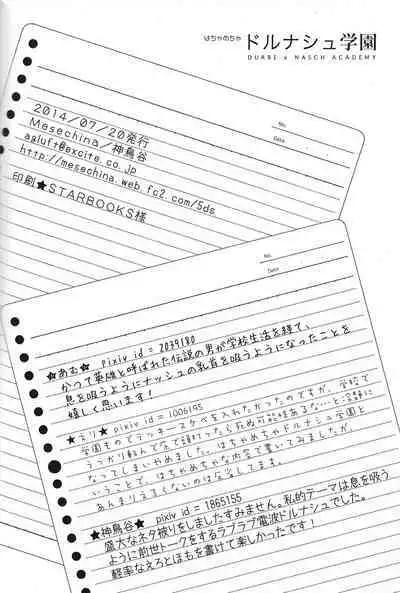 はちゃめちゃ ドルナシュ学園
DURBE x NASCH ACADEMY
No.
Date
2014/07/20発行
Mesechina/神鳥谷
agluft@excite.co.jp
http://mesechina.web.fc2.com/5ds
印刷★STARBOOKS様
No.
Date
★ある★ pixiv id = 2039180
かつて英雄と呼ばれた伝説の男が学校生活を経て、
息を吸うようにナッシュの乳首を吸うようになったことを
嬉しく思います!
★えり★ pixiv id = 1006155
学園ものでデッキースケベを入れたかったのですが、学校で
うっかり転んで金で頭打ったら死ぬ可能性あるな…と冷静に
なってしまいやめました。はちゃめちゃドルナシュ学園と
いうことで、はちゃめちゃな内容で書いてみましたが、
あんまりえろくないのは反省してます。
★神鳥谷★ pixiv id = 1865155
盛大なネタ被りをしましたすみません。私的テーマは息を吸う
ように前世トークをするラブラブ電波ドルナシュでした。
軽率なえろとほもを書けて楽しかったです!